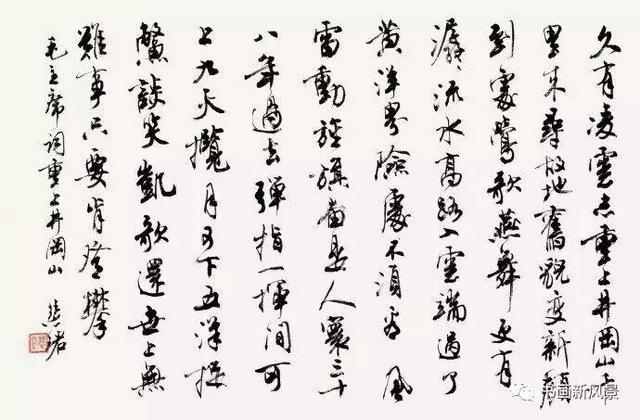 久有凌雲志重上井岡山千
里来尋故地舊貌變新顏
到處鶯歌燕舞更有
潺々流水高路入雲端過了
黄洋界險處不須看風
雷動旌旗奮是人寰三十
八年過去彈指一揮間可
上九天攬月可下五洋捉
鱉談笑凱歌還世上無
難事只要肯登攀
毛主席詞重上井岡山 慧珺
书画新风景